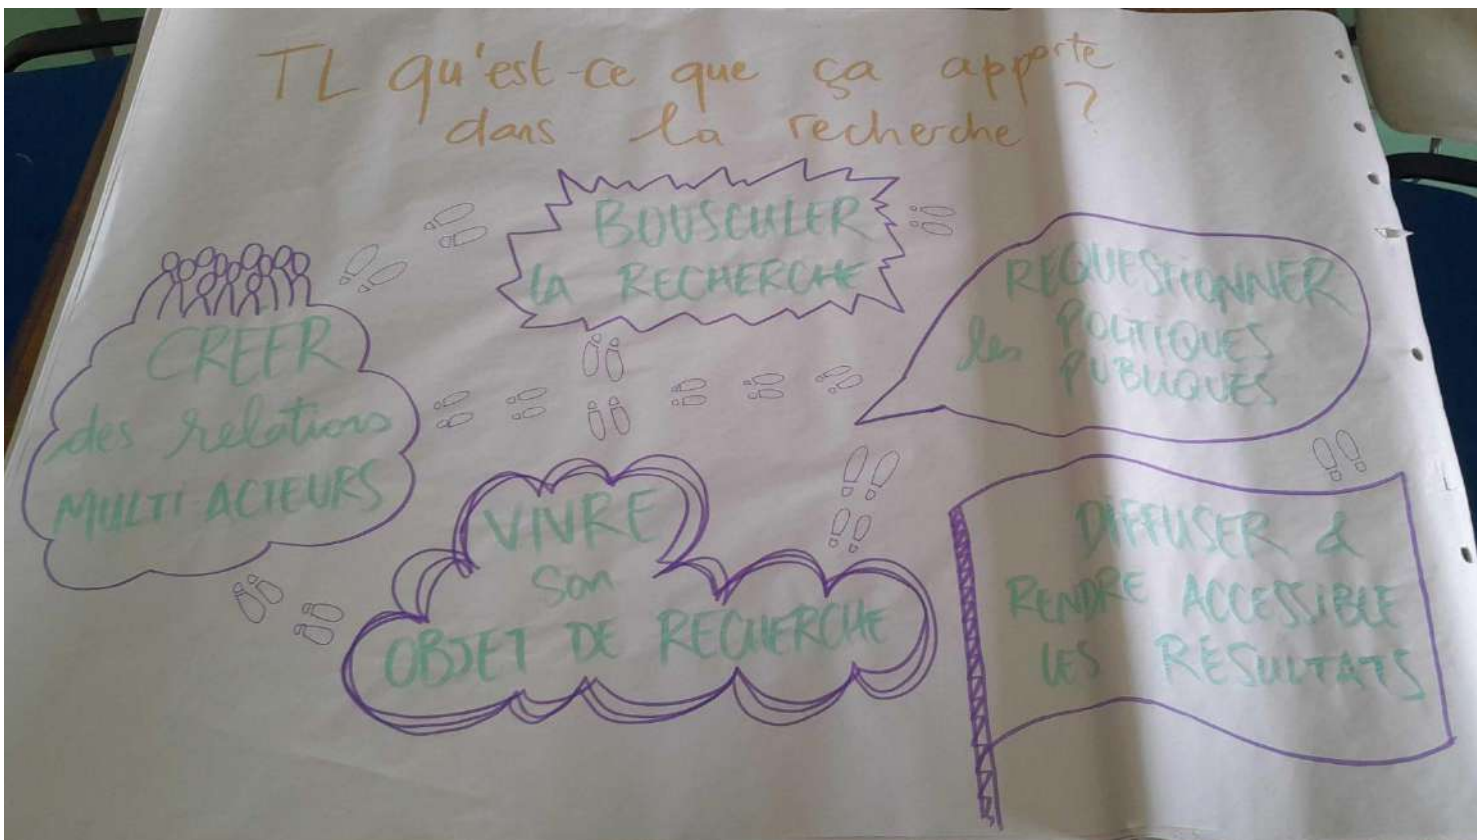 TL qu'est-ce que ça apporte
dans la recherche ?
BOUSCULER
LA RECHERCHE
CREER
des relations
MULTI-ACTEURS
REQUESTIONNER
les POLITIQUES
PUBLIQUES
VIVRE
son
OBJET DE RECHERCHE
DIFFUSER &
RENDRE ACCESSIBLE
LES RÉSULTATS